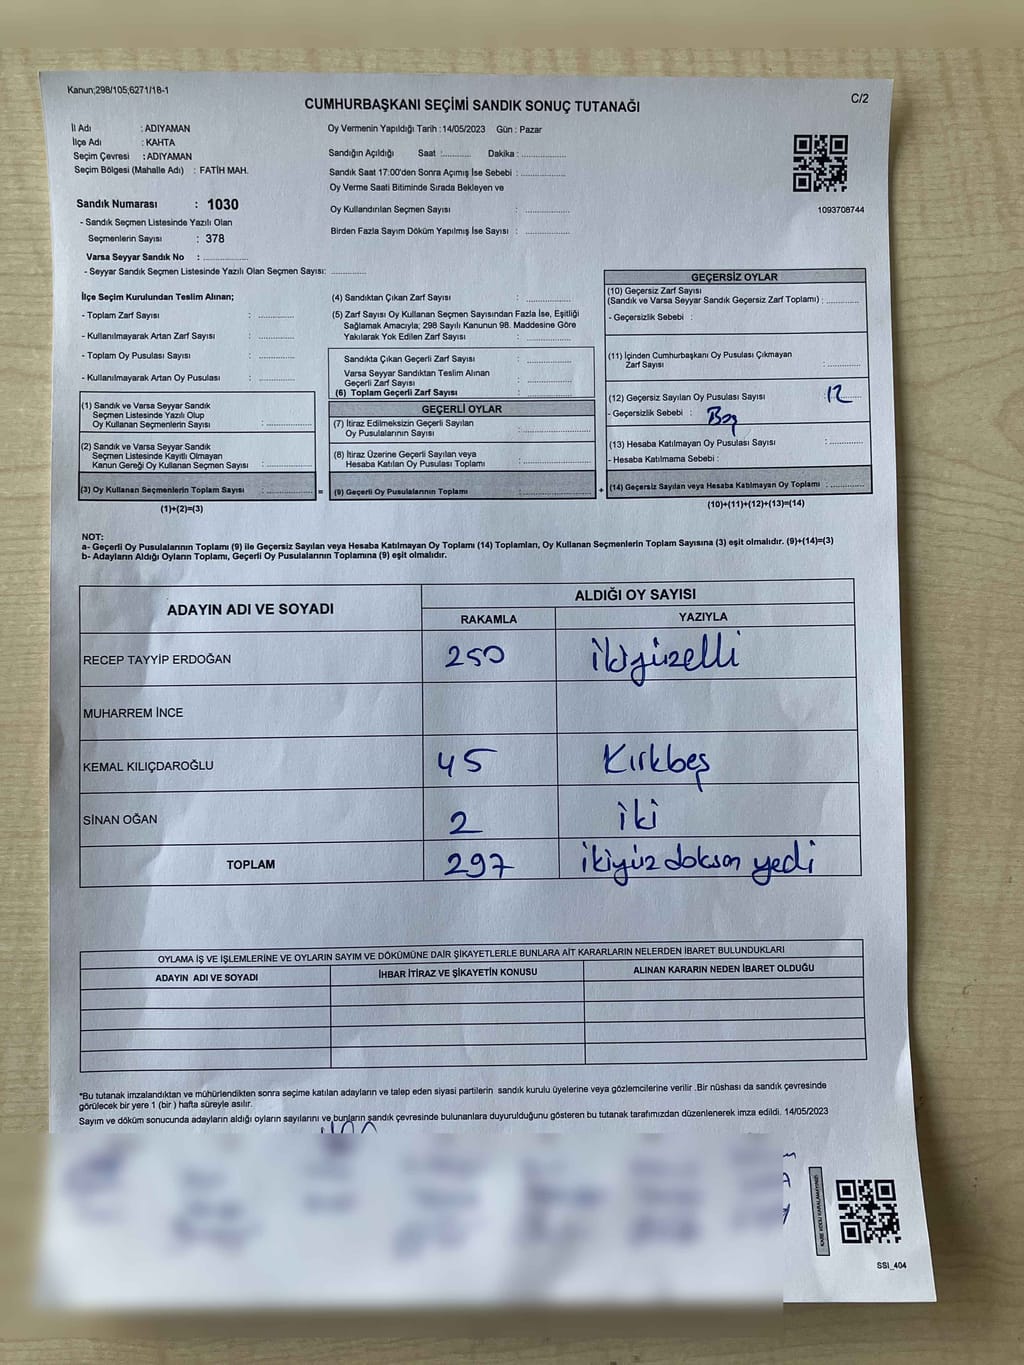 Kanun;298/105;6271/18-1
CUMHURBAŞKANI SEÇİMİ SANDIK SONUÇ TUTANAĞI
C/2
İl Adı : ADIYAMAN
İlçe Adı : KAHTA
Seçim Çevresi : ADIYAMAN
Seçim Bölgesi (Mahalle Adı) : FATİH MAH.
Sandık Numarası : 1030
- Sandık Seçmen Listesinde Yazılı Olan
Seçmenlerin Sayısı : 378
Varsa Seyyar Sandık No : ............
- Seyyar Sandık Seçmen Listesinde Yazılı Olan Seçmen Sayısı: ............
Oy Vermenin Yapıldığı Tarih : 14/05/2023 Gün : Pazar
Sandığın Açıldığı Saat :.......... Dakika: ............
Sandık Saat 17:00'den Sonra Açımış İse Sebebi : ............
Oy Verme Saati Bitiminde Sırada Bekleyen ve
Oy Kullandırılan Seçmen Sayısı : ............
Birden Fazla Sayım Döküm Yapılmış İse Sayısı : ............
1093708744
İlçe Seçim Kurulundan Teslim Alınan;
- Toplam Zarf Sayısı : ............
- Kullanılmayarak Artan Zarf Sayısı : ............
- Toplam Oy Pusulası Sayısı : ............
- Kullanılmayarak Artan Oy Pusulası : ............
(1) Sandık ve Varsa Seyyar Sandık
Seçmen Listesinde Yazılı Olup
Oy Kullanan Seçmenlerin Sayısı : ............
(2) Sandık ve Varsa Seyyar Sandık
Seçmen Listesinde Kayıtlı Olmayan
Kanun Gereği Oy Kullanan Seçmen Sayısı : ............
(3) Oy Kullanan Seçmenlerin Toplam Sayısı : ............
(1)+(2)=(3)
=
(4) Sandıktan Çıkan Zarf Sayısı : ............
(5) Zarf Sayısı Oy Kullanan Seçmen Sayısından Fazla İse, Eşitliği
Sağlamak Amacıyla; 298 Sayılı Kanunun 98. Maddesine Göre
Yakılarak Yok Edilen Zarf Sayısı : ............
Sandıkta Çıkan Geçerli Zarf Sayısı : ............
Varsa Seyyar Sandıktan Teslim Alınan
Geçerli Zarf Sayısı : ............
(6) Toplam Geçerli Zarf Sayısı : ............
GEÇERLİ OYLAR
(7) İtiraz Edilmeksizin Geçerli Sayılan
Oy Pusulalarının Sayısı : ............
(8) İtiraz Üzerine Geçerli Sayılan veya
Hesaba Katılan Oy Pusulası Toplamı : ............
(9) Geçerli Oy Pusulalarının Toplamı : ............
+
GEÇERSİZ OYLAR
(10) Geçersiz Zarf Sayısı
(Sandık ve Varsa Seyyar Sandık Geçersiz Zarf Toplamı) : ............
- Geçersizlik Sebebi :
(11) İçinden Cumhurbaşkanı Oy Pusulası Çıkmayan
Zarf Sayısı : ............
(12) Geçersiz Sayılan Oy Pusulası Sayısı : 12
- Geçersizlik Sebebi : Boş
(13) Hesaba Katılmayan Oy Pusulası Sayısı : ............
- Hesaba Katılmama Sebebi :
(14) Geçersiz Sayılan veya Hesaba Katılmayan Oy Toplamı : ............
(10)+(11)+(12)+(13)=(14)
NOT:
a- Geçerli Oy Pusulalarının Toplamı (9) ile Geçersiz Sayılan veya Hesaba Katılmayan Oy Toplamı (14) Toplamları, Oy Kullanan Seçmenlerin Toplam Sayısına (3) eşit olmalıdır. (9)+(14)=(3)
b- Adayların Aldığı Oyların Toplamı, Geçerli Oy Pusulalarının Toplamına (9) eşit olmalıdır.
ADAYIN ADI VE SOYADI
ALDIĞI OY SAYISI
RAKAMLA YAZIYLA
RECEP TAYYİP ERDOĞAN 250 ikiyüzelli
MUHARREM İNCE
KEMAL KILIÇDAROĞLU 45 Kırkbeş
SİNAN OĞAN 2 iki
TOPLAM 297 ikiyüz doksan yedi
OYLAMA İŞ VE İŞLEMLERİNE VE OYLARIN SAYIM VE DÖKÜMÜNE DAİR ŞİKAYETLERLE BUNLARA AİT KARARLARIN NELERDEN İBARET BULUNDUKLARI
ADAYIN ADI VE SOYADI İHBAR İTİRAZ VE ŞİKAYETİN KONUSU ALINAN KARARIN NEDEN İBARET OLDUĞU
*Bu tutanak imzalandıktan ve mühürlendikten sonra seçime katılan adayların ve talep eden siyasi partilerin sandık kurulu üyelerine veya gözlemcilerine verilir .Bir nüshası da sandık çevresinde
görülecek bir yere 1 (bir ) hafta süreyle asılır.
Sayım ve döküm sonucunda adayların aldığı oyların sayılarını ve bunların sandık çevresinde bulunanlara duyurulduğunu gösteren bu tutanak tarafımızdan düzenlenerek imza edildi. 14/05/2023
KARE KODU KARALAMAYINIZ!
SSİ_404